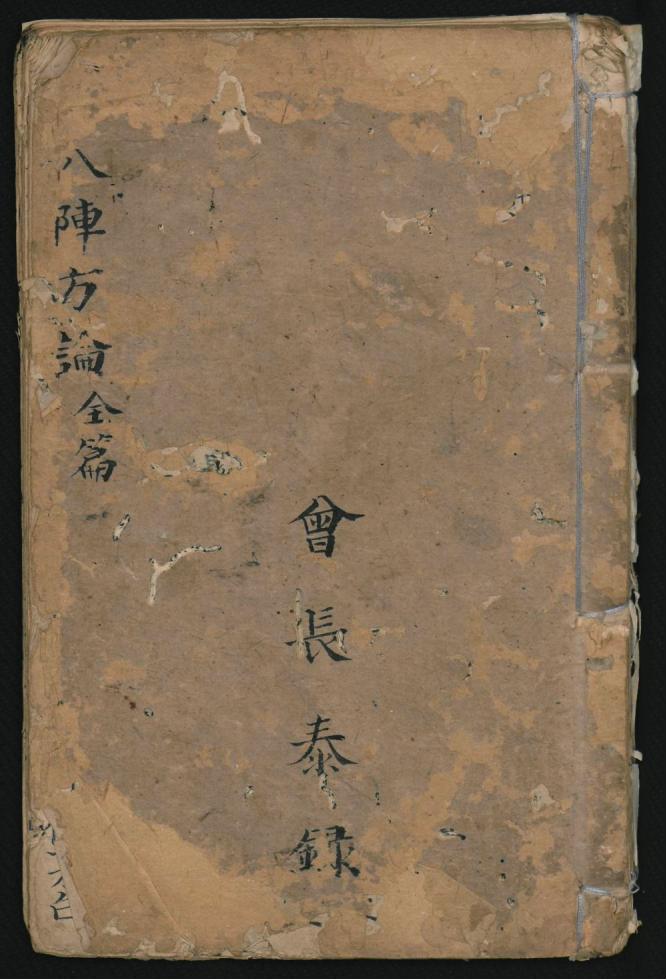 八陣方論全篇
曾長泰録